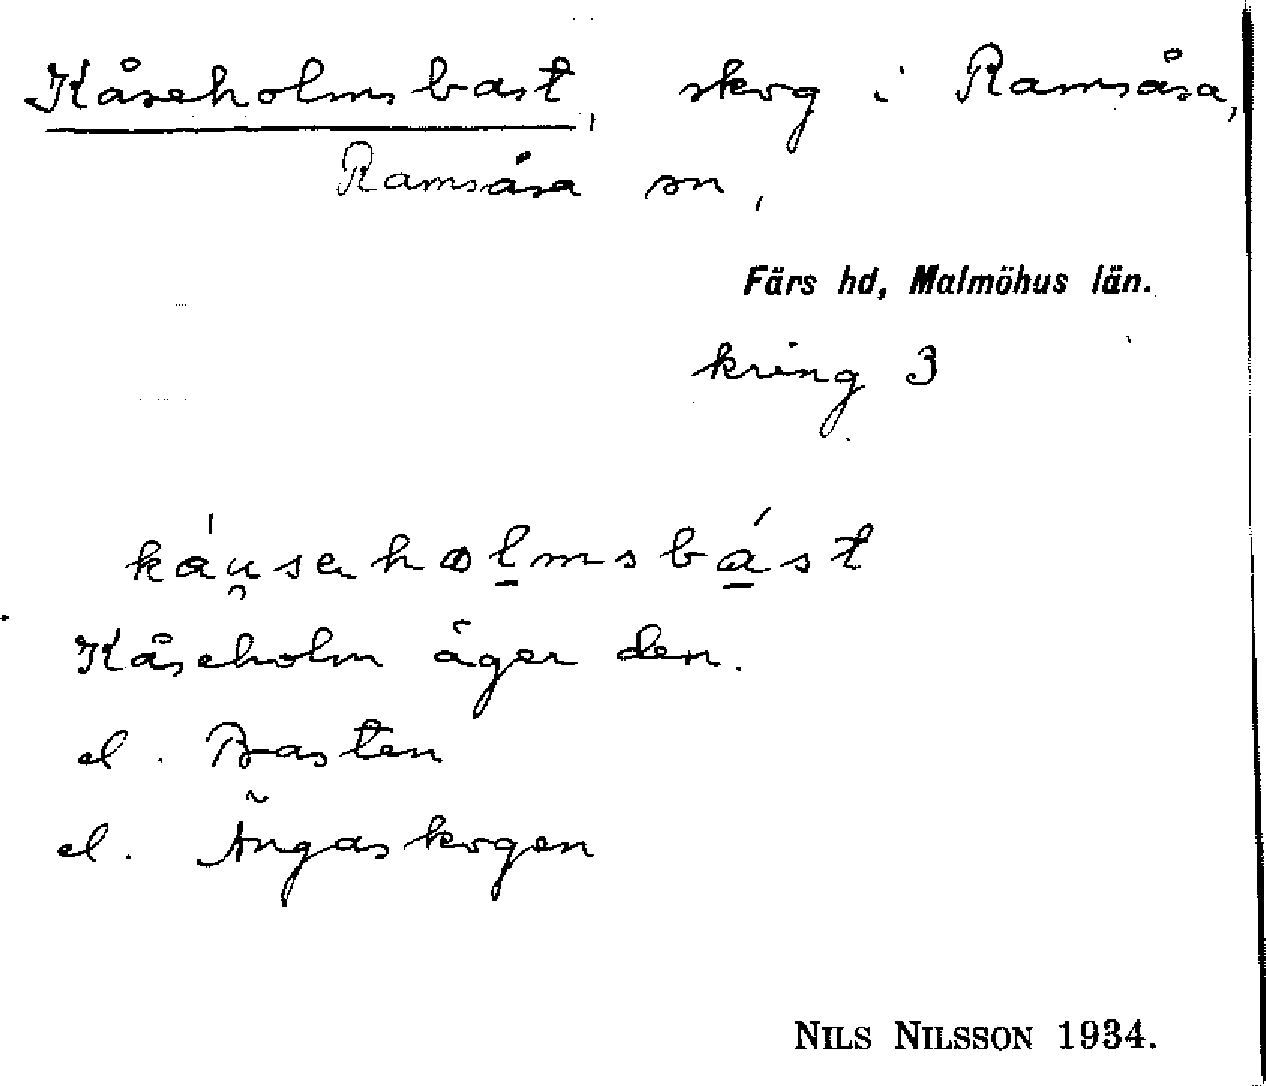 Kåseholmsbast, skog i Ramsåsa,
Ramsåsa sn,
Färs hd, Malmöhus län.
kring 3
Kåseholm äger den.
el. Basten
el. Ängaskogen
NILS NILSSON 1934.